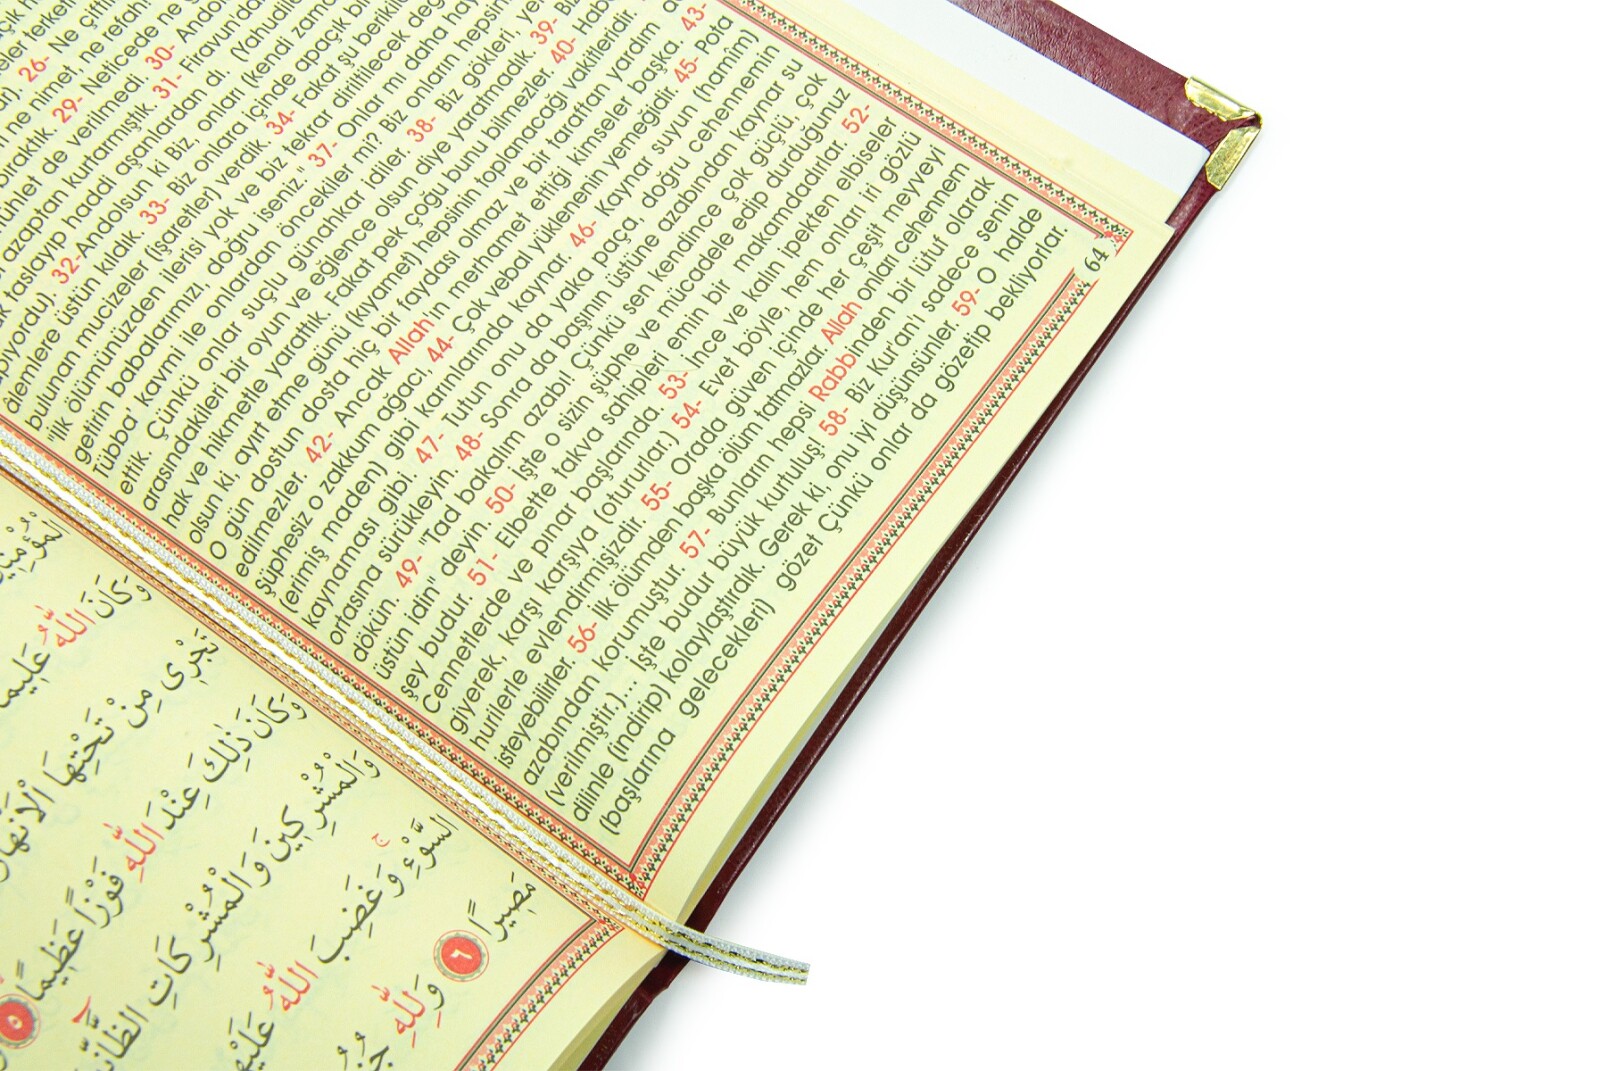 26- Ne
ne nimet, ne refah!
29- Nerede ne
mühlet de verilmedi. 30-
azaptan kurtarmıştık. 31- Firavun'da
taslayıp haddi aşanlardan di. (Yahudile
32-Andolsun ki Biz, onları (kendi
âlemlere üstün kıldık. 33- Biz onlara içinde apaçık bi
bulunan mucizeler (işaretler) verdik. 34- Fakat şu
"İlk ölümümüzden ilerisi yok ve biz tekrar diriltilecek değ
getirin babalarımızı, doğru iseniz." 37- Onlar mı daha
Tübba' kavmi ile onlardan öncekiler mi? Biz onların hepsin
ettik. Çünkü onlar suçlu günahkar idiler. 38- Biz gökleri, ye
arasındakileri bir oyun ve eğlence olsun diye yaratmadık. 39-
hak ve hikmetle yarattık. Fakat pek çoğu bunu bilmezler. 40-
olsun ki, ayırt etme günü (kıyamet) hepsinin toplanacağı vakitleridir.
O gün dostun dosta hiç bir faydası olmaz ve bir taraftan yardım
edilmezler. 42- Ancak Allah'ın merhamet ettiği kimseler başka. 43-
şüphesiz o zakkum ağacı, 44- Çok vebal yüklenenin yemeğidir. 45- Pota
(erimiş maden) gibi karınlarında kaynar. 46- Kaynar suyun (hamîm)
kaynaması gibi. 47- Tutun onu da yaka paça, doğru cehennemin
ortasına sürükleyin. 48- Sonra da başının üstüne azabından kaynar su
dökün. 49- "Tad bakalım azabı! Çünkü sen kendince çok güçlü, çok
üstün idin" deyin. 50- İşte o sizin şüphe ve mücadele edip durduğunuz
şey budur. 51- Elbette takva sahipleri emin bir makamdadırlar. 52-
Cennetlerde ve pınar başlarında. 53- İnce ve kalın ipekten elbiseler
giyerek, karşı karşıya (otururlar.) 54- Evet böyle, hem onları iri gözlü
hurilerle evlendirmişizdir. 55- Orada güven içinde her çeşit meyveyi
isteyebilirler. 56- İlk ölümden başka ölüm tatmazlar. Allah onları cehennem
azabından korumuştur. 57- Bunların hepsi Rabbinden bir lütuf olarak
(verilmiştir.)... İşte budur büyük kurtuluş! 58- Biz Kur'an'ı sadece senin
dilinle (indirip) kolaylaştırdık. Gerek ki, onu iyi düşünsünler. 59- O halde
(başlarına gelecekleri) gözet Çünkü onlar da gözetip bekliyorlar.
64
وَكَانَ اللّٰهُ عَلِيمًا
تَجْرِى مِنْ تَحْتِهَا الْاَنْهَارُ
وَكَانَ ذٰلِكَ عِنْدَ اللّٰهِ فَوْزًا عَظِيمًا ٥
وَالْمُشْرِكِينَ وَالْمُشْرِكَاتِ
السَّوْءِ وَغَضِبَ اللّٰهُ عَلَيْهِمْ
مَصِيرًا ٦ وَلِلّٰهِ